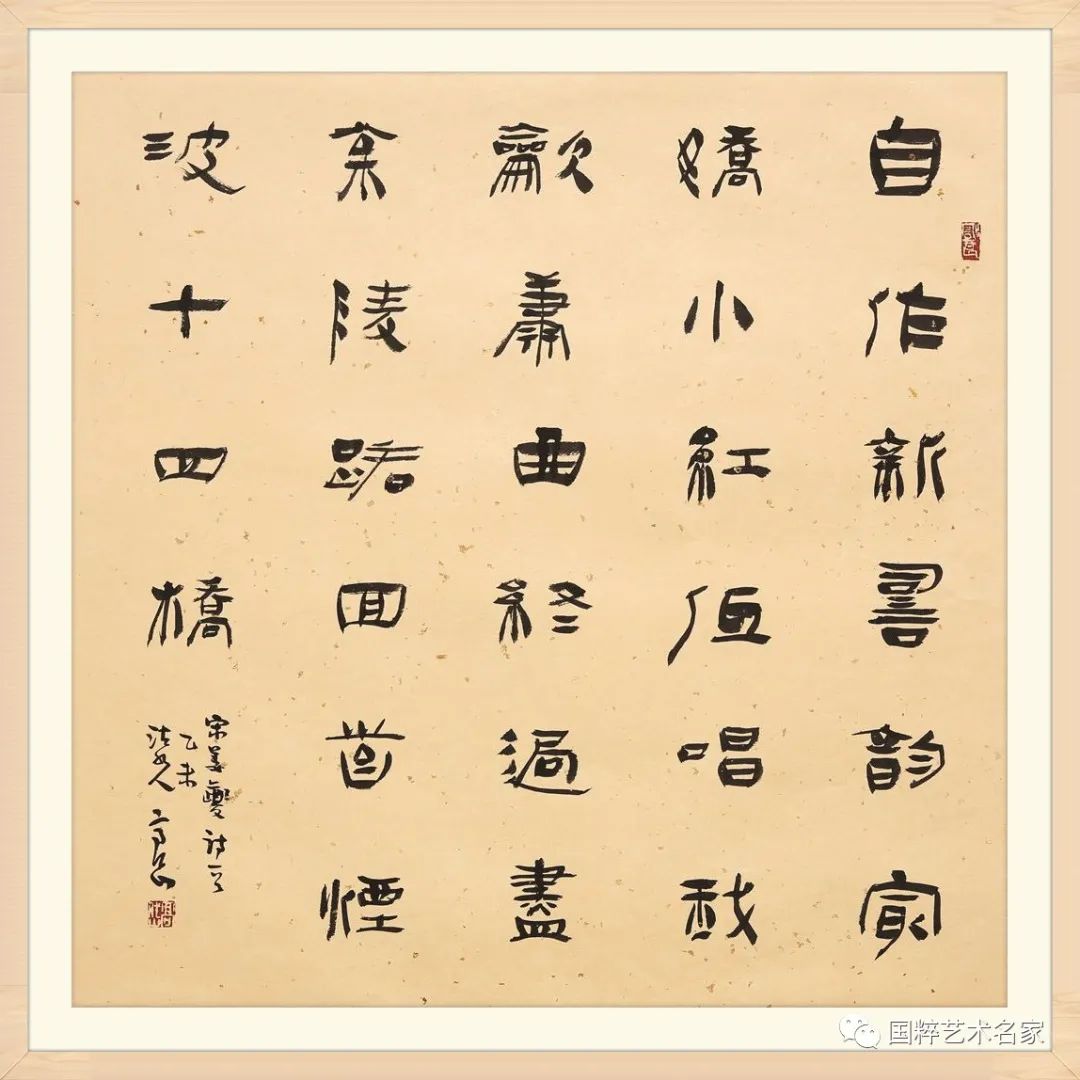 自作新詞韻冣
嬌小紅低唱我
龡簫曲終過盡
枀陵路回首煙
波十四橋
宋姜夔詩
乙未
国粹艺术名家